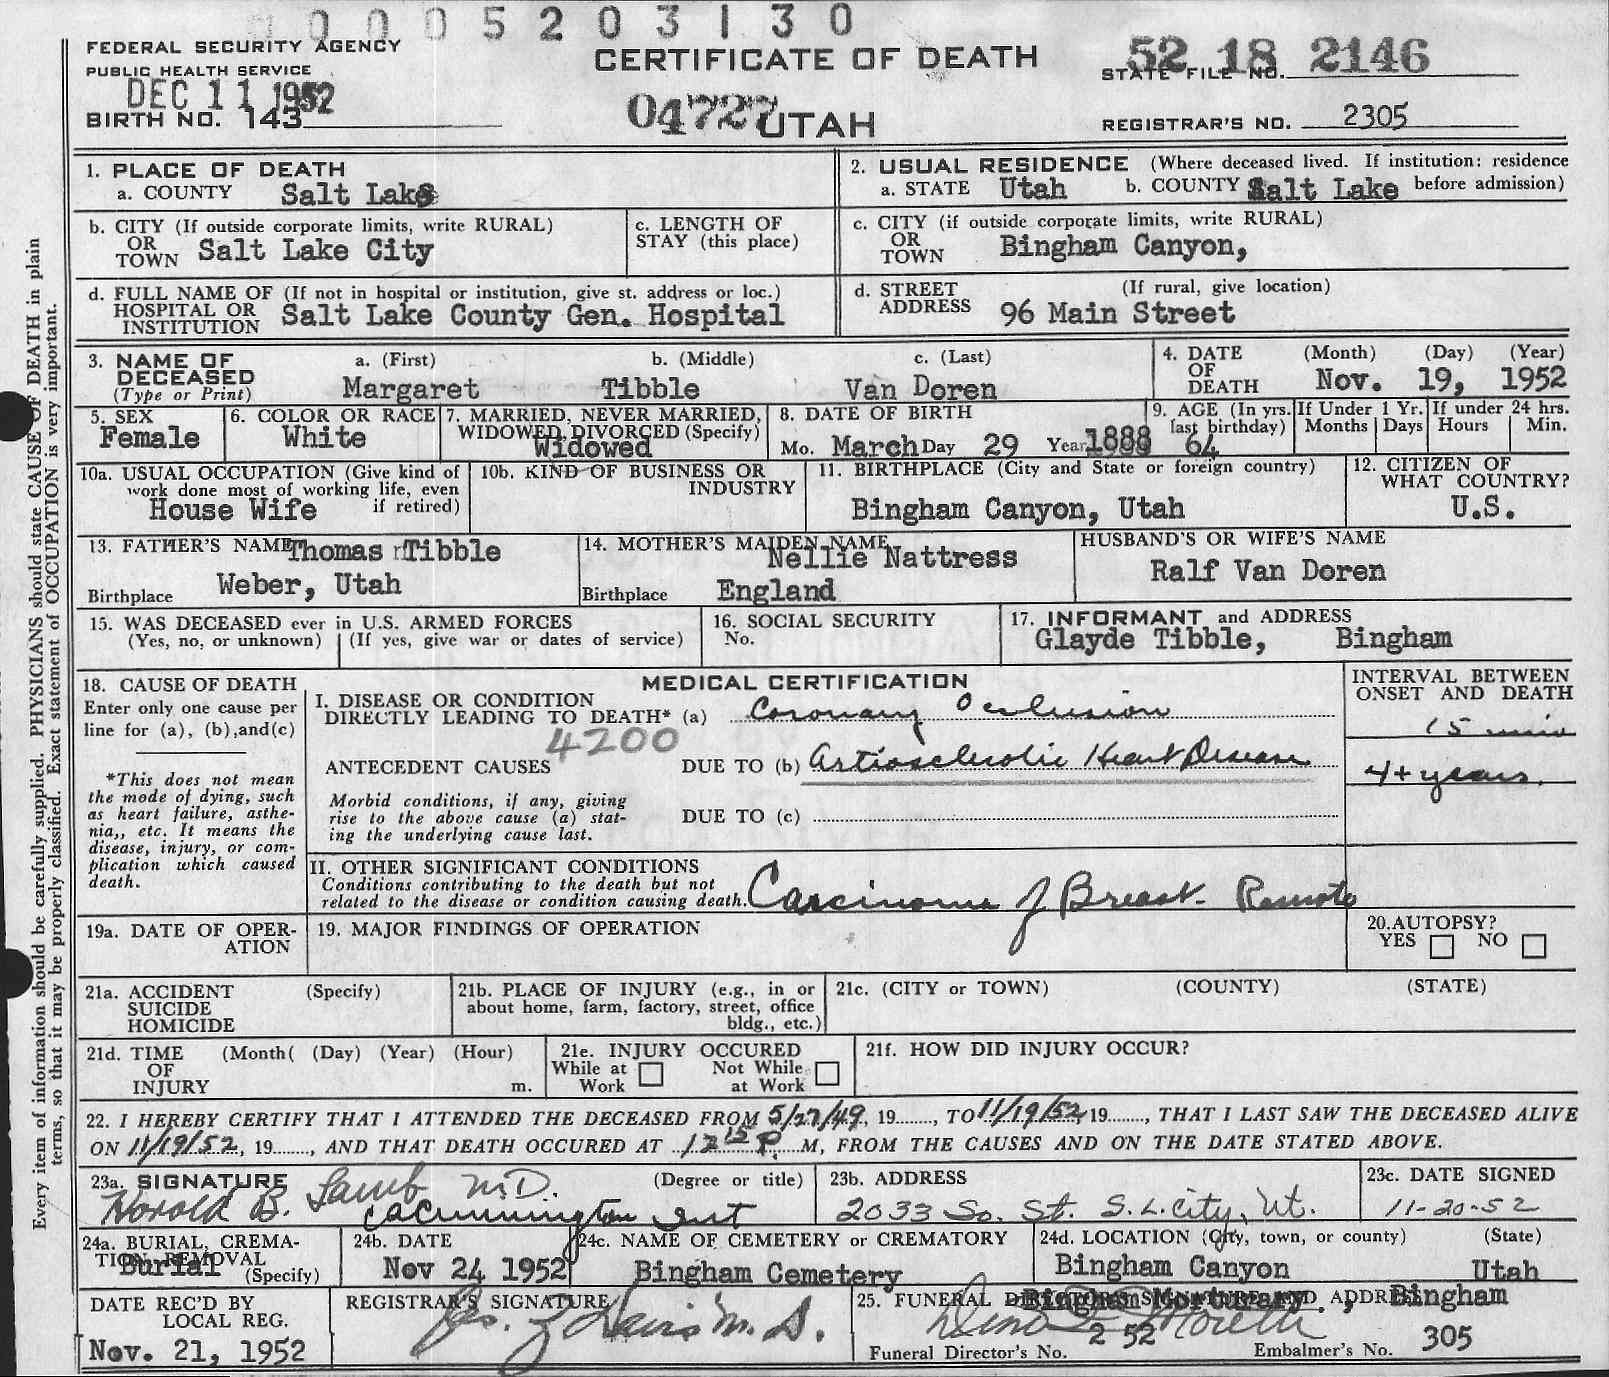 0005203130
FEDERAL SECURITY AGENCY
PUBLIC HEALTH SERVICE
DEC 11 1952
BIRTH NO. 143
CERTIFICATE OF DEATH
04727 UTAH
52 18 2146
STATE FILE NO.
REGISTRAR'S NO. 2305
Every item of information should be carefully supplied. PHYSICIANS should state CAUSE OF DEATH in plain
terms, so that it may be properly classified. Exact statement of OCCUPATION is very important.
1. PLACE OF DEATH
a. COUNTY Salt Lake
2. USUAL RESIDENCE (Where deceased lived. If institution: residence
a. STATE Utah b. COUNTY Salt Lake before admission)
b. CITY (If outside corporate limits, write RURAL)
OR
TOWN Salt Lake City
c. LENGTH OF
STAY (this place)
c. CITY (if outside corporate limits, write RURAL)
OR
TOWN Bingham Canyon,
d. FULL NAME OF (If not in hospital or institution, give st. address or loc.)
HOSPITAL OR
INSTITUTION Salt Lake County Gen. Hospital
d. STREET (If rural, give location)
ADDRESS 96 Main Street
3. NAME OF DECEASED (Type or Print)
a. (First) b. (Middle) c. (Last)
Margaret Tibble Van Doren
4. DATE OF DEATH (Month) (Day) (Year)
Nov. 19, 1952
5. SEX
Female
6. COLOR OR RACE
White
7. MARRIED, NEVER MARRIED,
WIDOWED, DIVORCED (Specify)
Widowed
8. DATE OF BIRTH
Mo. March Day 29 Year 1888
9. AGE (In yrs.
last birthday)
64
If Under 1 Yr.
Months Days
If under 24 hrs.
Hours Min.
10a. USUAL OCCUPATION (Give kind of
work done most of working life, even
if retired)
House Wife
10b. KIND OF BUSINESS OR
INDUSTRY
11. BIRTHPLACE (City and State or foreign country)
Bingham Canyon, Utah
12. CITIZEN OF
WHAT COUNTRY?
U.S.
13. FATHER'S NAME Thomas Tibble
Birthplace Weber, Utah
14. MOTHER'S MAIDEN NAME
Nellie Nattress
Birthplace England
HUSBAND'S OR WIFE'S NAME
Ralf Van Doren
15. WAS DECEASED ever in U.S. ARMED FORCES
(Yes, no, or unknown) (If yes, give war or dates of service)
16. SOCIAL SECURITY
No.
17. INFORMANT and ADDRESS
Glayde Tibble, Bingham
18. CAUSE OF DEATH
Enter only one cause per
line for (a), (b),and(c)
*This does not mean
the mode of dying, such
as heart failure, asthe-
nia,, etc. It means the
disease, injury, or com-
plication which caused
death.
MEDICAL CERTIFICATION
I. DISEASE OR CONDITION
DIRECTLY LEADING TO DEATH* (a) Coronary Occlusion
4200
ANTECEDENT CAUSES DUE TO (b) Artiosclerotic Heart Disease
Morbid conditions, if any, giving
rise to the above cause (a) stat-
ing the underlying cause last.
DUE TO (c)
INTERVAL BETWEEN
ONSET AND DEATH
15 min
4+ years.
II. OTHER SIGNIFICANT CONDITIONS
Conditions contributing to the death but not
related to the disease or condition causing death.
Carcinoma of Breast - Remote
19a. DATE OF OPER-
ATION
19. MAJOR FINDINGS OF OPERATION
20.AUTOPSY?
YES NO
21a. ACCIDENT (Specify)
SUICIDE
HOMICIDE
21b. PLACE OF INJURY (e.g., in or
about home, farm, factory, street, office
bldg., etc.)
21c. (CITY or TOWN) (COUNTY) (STATE)
21d. TIME (Month( (Day) (Year) (Hour)
OF
INJURY m.
21e. INJURY OCCURED
While at Work Not While at Work
21f. HOW DID INJURY OCCUR?
22. I HEREBY CERTIFY THAT I ATTENDED THE DECEASED FROM 5/27/49, 19......., TO 11/19/52, 19......., THAT I LAST SAW THE DECEASED ALIVE
ON 11/19/52, 19......., AND THAT DEATH OCCURED AT 12 15 P. M, FROM THE CAUSES AND ON THE DATE STATED ABOVE.
23a. SIGNATURE (Degree or title)
Harold B. Lamb M.D.
23b. ADDRESS
2033 So. St. S.L. City, Ut.
23c. DATE SIGNED
11-20-52
24a. BURIAL, CREMA-
TION, REMOVAL
(Specify)
Burial
24b. DATE
Nov 24 1952
24c. NAME OF CEMETERY OR CREMATORY
Bingham Cemetery
24d. LOCATION (City, town, or county) (State)
Bingham Canyon Utah
DATE REC'D BY
LOCAL REG.
Nov. 21, 1952
REGISTRAR'S SIGNATURE
25. FUNERAL DIRECTOR'S SIGNATURE AND ADDRESS
Bingham Mortuary., Bingham
Funeral Director's No. 2 52
Embalmer's No. 305